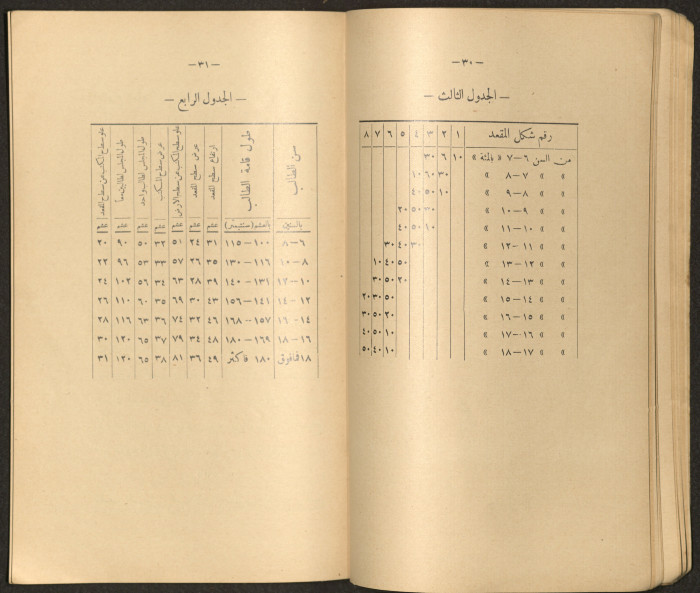 —٣٠—
— الجدول الثالث —
رقم شكل المقعد ١ ٢ ٣ ٤ ٥ ٦ ٧ ٨
من السن ٦—٧ « بالمئة » ١٠ ٦٠ ٣٠
» » ٧—٨ » ٣٠ ٦٠ ١٠
» » ٨—٩ » ١٠ ٥٠ ٤٠
» » ٩—١٠ » ٣٠ ٥٠ ٢٠
» » ١٠—١١ » ١٠ ٥٠ ٤٠
» » ١١—١٢ » ٣٠ ٤٠ ٣٠
» » ١٢—١٣ » ٥٠ ٤٠ ١٠
» » ١٣—١٤ » ٢٠ ٥٠ ٣٠
» » ١٤—١٥ » ٥٠ ٣٠ ٢٠
» » ١٥—١٦ » ٢٠ ٥٠ ٣٠
» » ١٦—١٧ » ١٠ ٥٠ ٤٠
» » ١٧—١٨ » ١٠ ٤٠ ٥٠
—٣١—
— الجدول الرابع —
سن الطالب
طول قامة الطالب
ارتفاع سطح المقعد
عرض سطح المقعد
علو سطح المكتب عن سطح الارض
عرض سطح المكتب
طول المجلس لطالب واحد
طول المجلس لطالبين معاً
علو سطح المكتب عن سطح المقعد
بالسنين بالسنتم (سنتيمتر) سنتم سنتم سنتم سنتم سنتم سنتم سنتم
٦—٨ ١٠٠—١١٥ ٣١ ٢٤ ٥١ ٣٢ ٥٠ ٩٠ ٢٠
٨—١٠ ١١٦—١٣٠ ٣٥ ٢٦ ٥٧ ٣٣ ٥٣ ٩٦ ٢٢
١٠—١٢ ١٣١—١٤٠ ٣٩ ٢٨ ٦٣ ٣٤ ٥٦ ١٠٢ ٢٤
١٢—١٤ ١٤١—١٥٦ ٤٣ ٣٠ ٦٩ ٣٥ ٦٠ ١١٠ ٢٦
١٤—١٦ ١٥٧—١٦٨ ٤٦ ٣٢ ٧٤ ٣٦ ٦٣ ١١٦ ٢٨
١٦—١٨ ١٦٩—١٨٠ ٤٨ ٣٤ ٧٩ ٣٧ ٦٥ ١٢٠ ٣٠
١٨ فما فوق ١٨٠ فاكثر ٤٩ ٣٦ ٨١ ٣٨ ٦٥ ١٢٠ ٣١